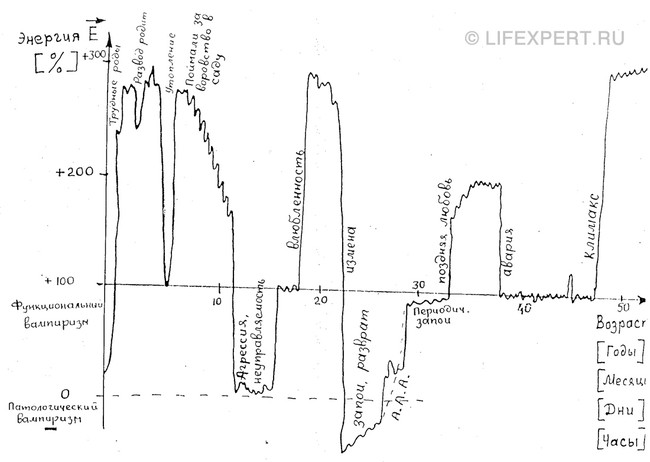 © LIFEXPERT.RU
Энергия E
[%]
+300
+200
+100
0
Функциональный
вампиризм
Патологический
вампиризм
Трудные роды
Развод родит
Утопление
Поймали за
воровство в
саду
Агрессия,
неуправляемость
влюбленность
измена
запои, разврат
А.Л.А.
Периодич.
запои
поздняя любовь
авария
климакс
10
20
30
40
50
Возраст
[Годы]
[Месяцы
[Дни]
[Часы]